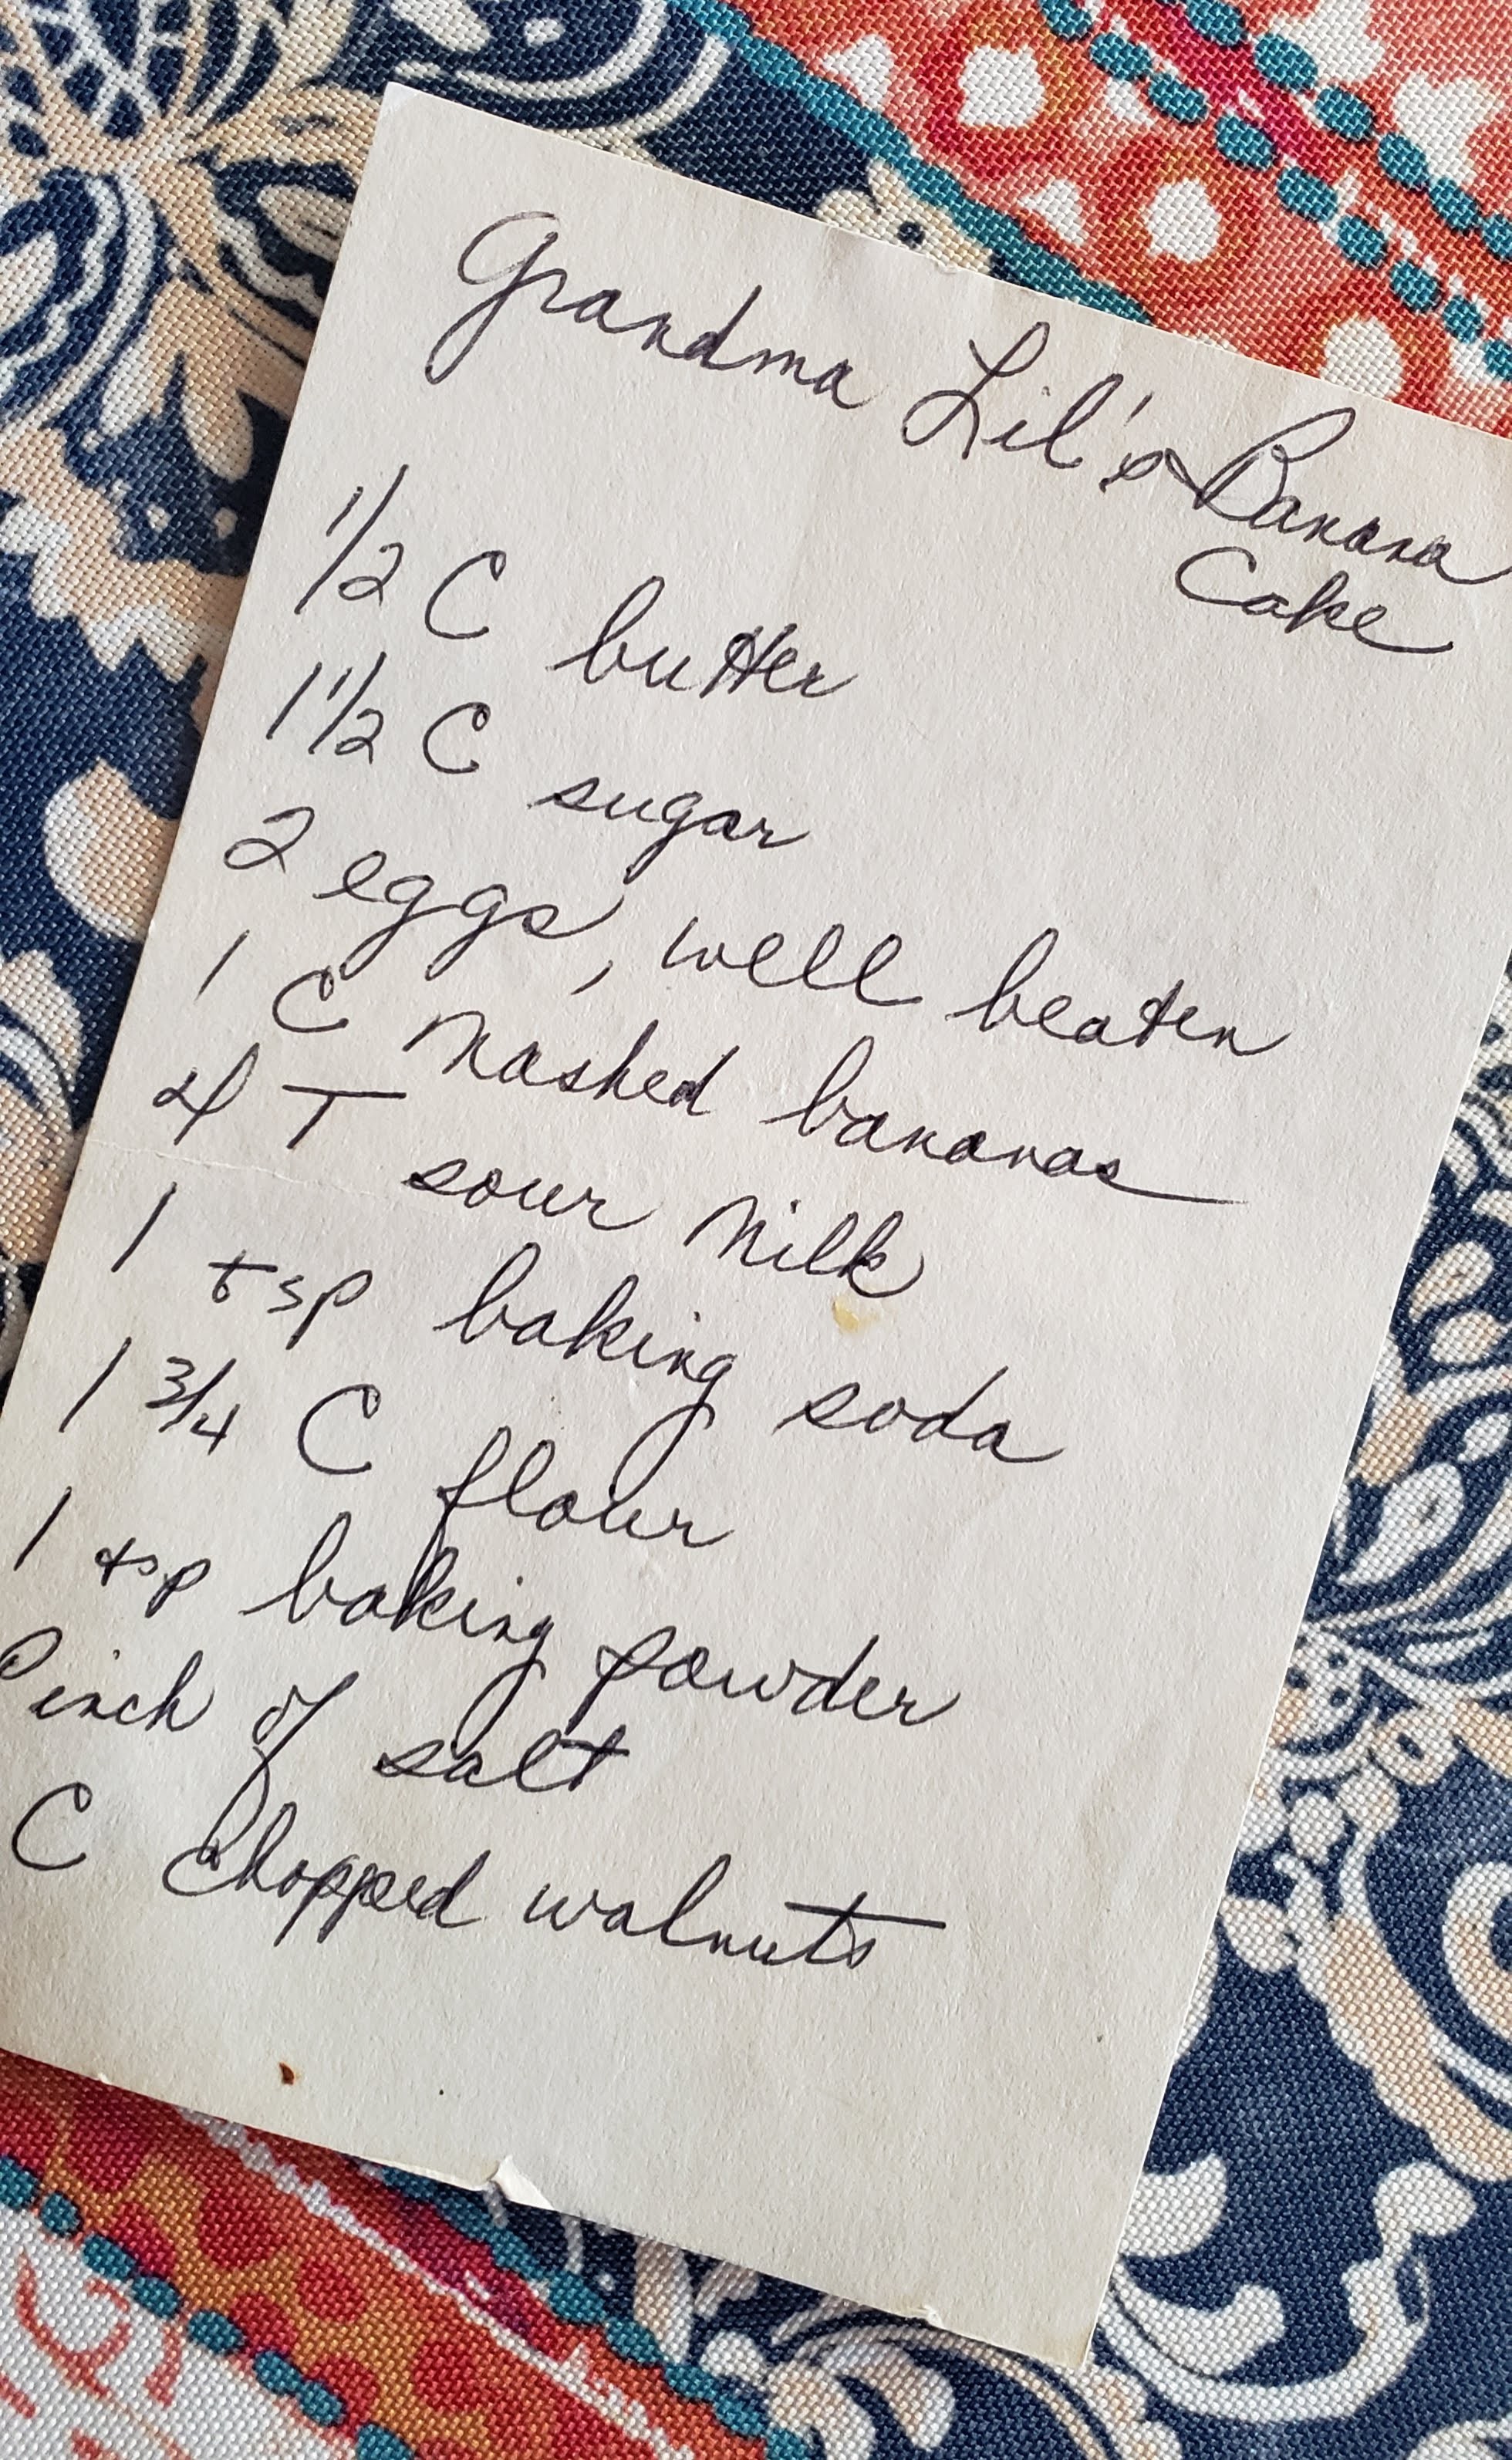 Grandma Lil's Banana
Cake
1/2 C butter
1 1/2 C sugar
2 eggs, well beaten
1 C mashed bananas
4 T sour milk
1 tsp baking soda
1 3/4 C flour
1 tsp baking powder
Pinch of salt
C Chopped walnuts